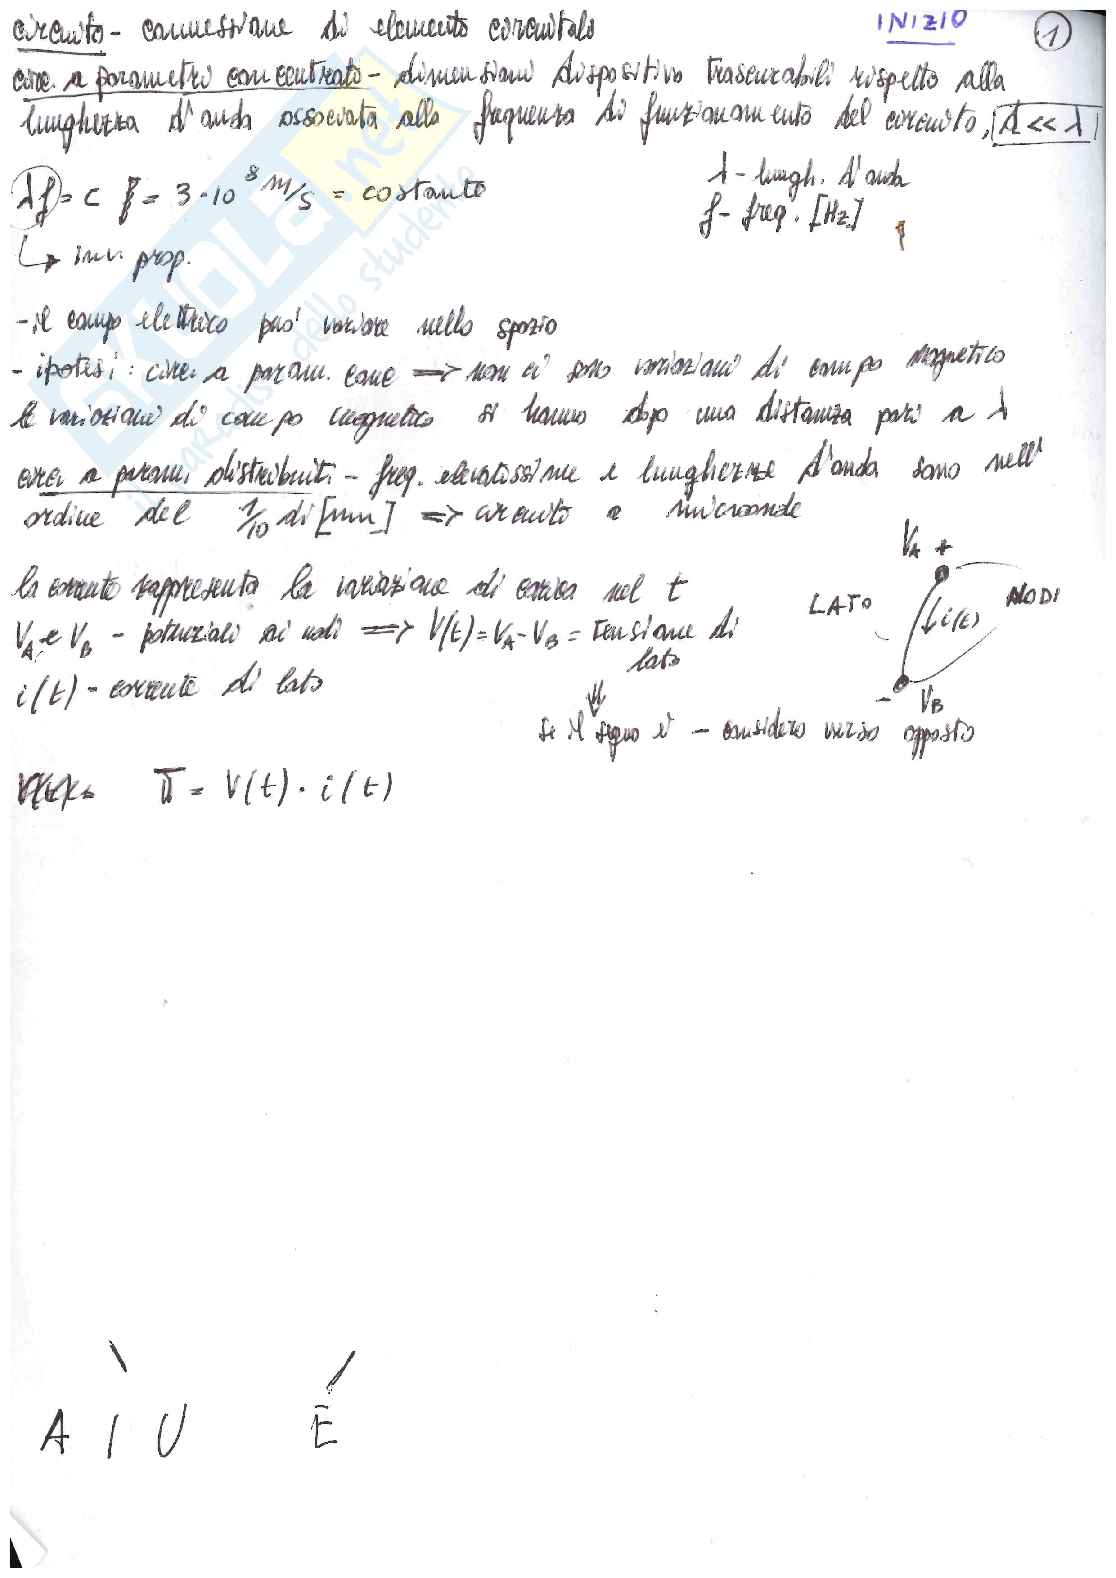 INIZIO
1
circuito - connessione di elemento circuitale
circ. a parametri concentrato - dimensioni dispositivo trascurabili rispetto alla
lunghezza d'onda associata alla frequenza di funzionamento del circuito, d << λ
λf = c = 3·10⁸ m/s = costante
λ - lungh. d'onda
f - freq. [Hz]
↳ inv. prop.
- il campo elettrico può variare nello spazio
- ipotesi: circ. a param. conc ⟹ non ci sono variazioni di campo magnetico
le variazioni di campo magnetico si hanno dopo una distanza pari a λ
circ. a param. distribuiti - freq. elevatissime e lunghezze d'onda sono nell'
ordine del 1/10 di [mm] ⟹ circuito a microonde
la corrente rappresenta la variazione di carica nel t
VA e VB - potenziali ai nodi ⟹ V(t) = VA - VB = tensione di
lato
i(t) - corrente di lato
VA +
LATO
i(t)
NODI
- VB
se il segno è - considero verso opposto
π = V(t) · i(t)
A I U E
SKUOLA.net
il paradiso dello studente